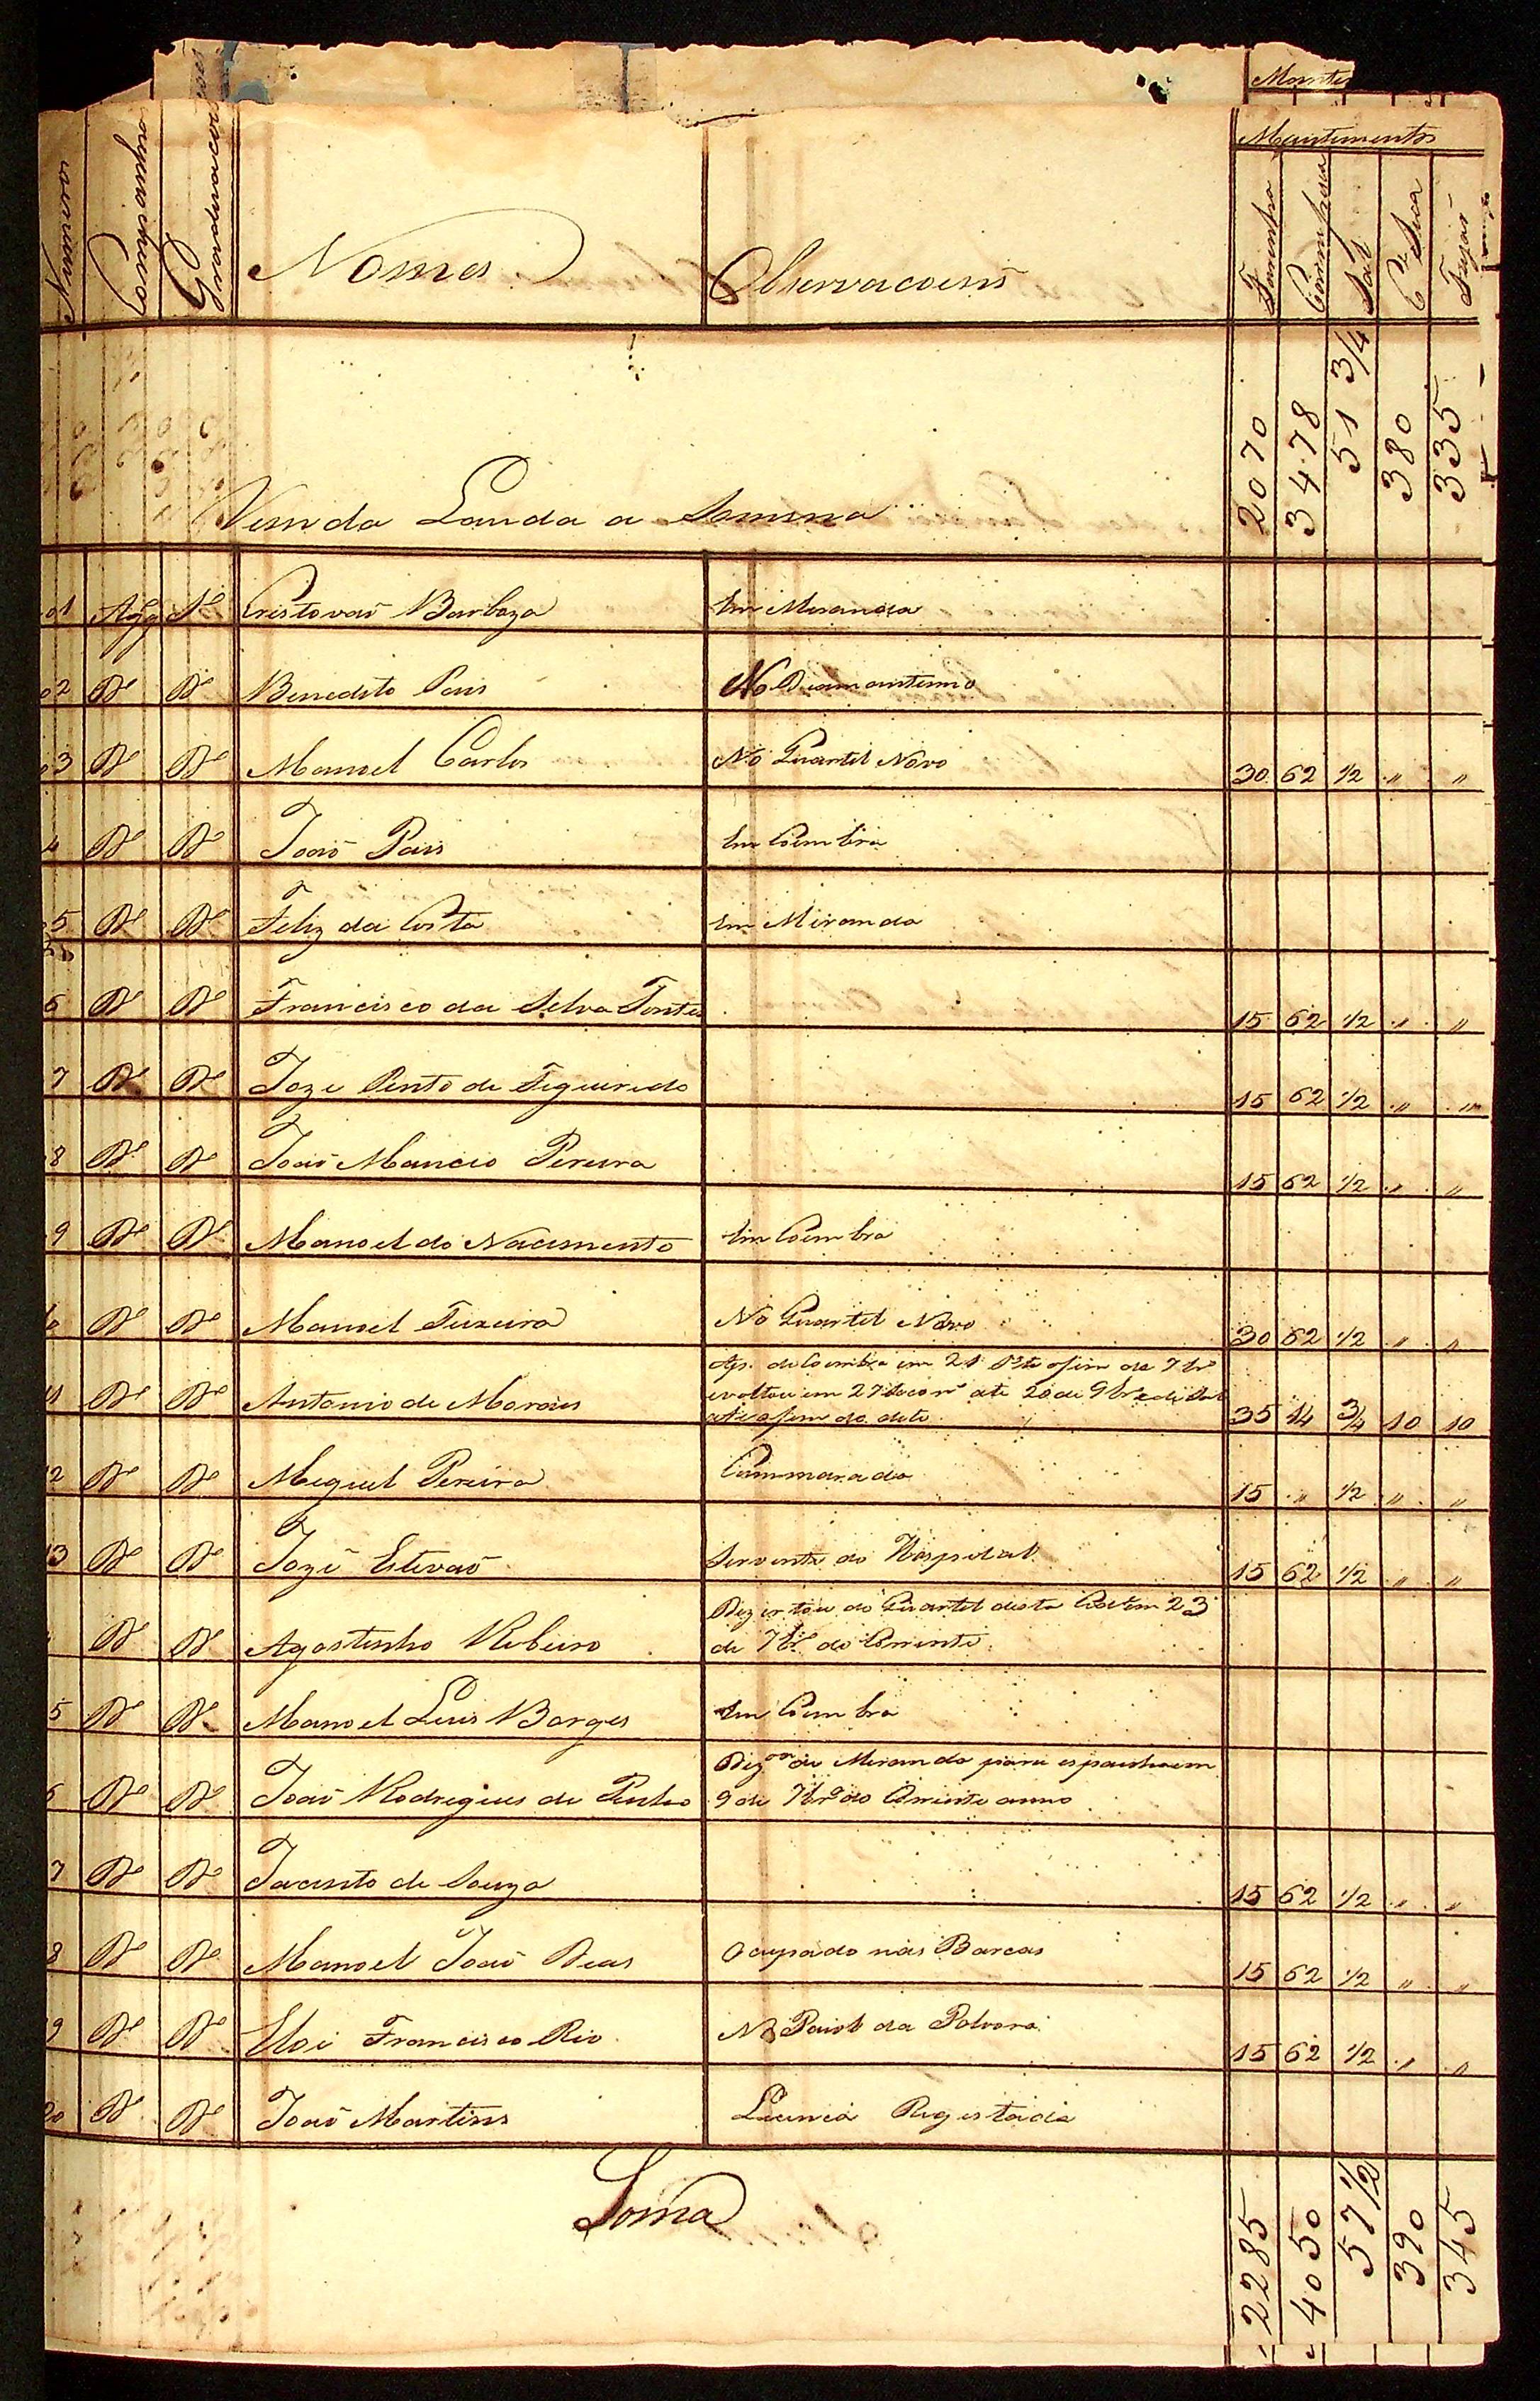 Mantimentos
Numeros Companhia Graduacoens Nomes Observacoens Farinha Carne fresca Sal C.e Seca Fejaõ
Vem da Lauda a Somma 2070 3478 51 3/4 380 335
01 Agg Sd.o Cristovaõ Barboza Em Miranda
02 D.o D.o Benedito Pais No Diamantino
03 D.o D.o Manoel Carlos No Quartel Novo 30 62 1/2 " "
4 D.o D.o Joaõ Pais Em Coimbra
5 D.o D.o Feliz da Costa Em Miranda
6 D.o D.o Francisco da Silva Fontes 15 62 1/2 " "
7 D.o D.o Joze Pinto de Figueiredo 15 62 1/2 " "
8 D.o D.o Joaõ Mancio Pereira 15 62 1/2 " "
9 D.o D.o Manoel do Nacimento Em Coimbra
D.o D.o Manoel Teixeira No Quartel Novo 30 62 1/2 " "
11 D.o D.o Antonio de Morais de Coimbra em 21 de 7br.o
em 27 até 20 de 9br.o
do dito 35 14 3/4 10 10
12 D.o D.o Miguel Pereira Cammarada 15 " 1/2 " "
13 D.o D.o Joze Estevaõ Servente do Hospital 15 62 1/2 " "
D.o D.o Agostinho Ribeiro Dizertou do Quartel desta em 23
de 7br.o do Corrente
5 D.o D.o Manoel Luis Borges Em Coimbra
6 D.o D.o Joaõ Rodrigues de Pinho Diz.ou de Miranda para espanha em
9 de 7br.o do Corrente anno
7 D.o D.o Jacinto de Souza 15 62 1/2 " "
8 D.o D.o Manoel Joaõ Dias Ocupado nas Barcas 15 62 1/2 " "
9 D.o D.o Eloi Francisco Rio No Paiol da Polvora 15 62 1/2 " "
20 D.o D.o Joaõ Martins Licencia Registada
Soma 2285 4050 57 1/2 390 345